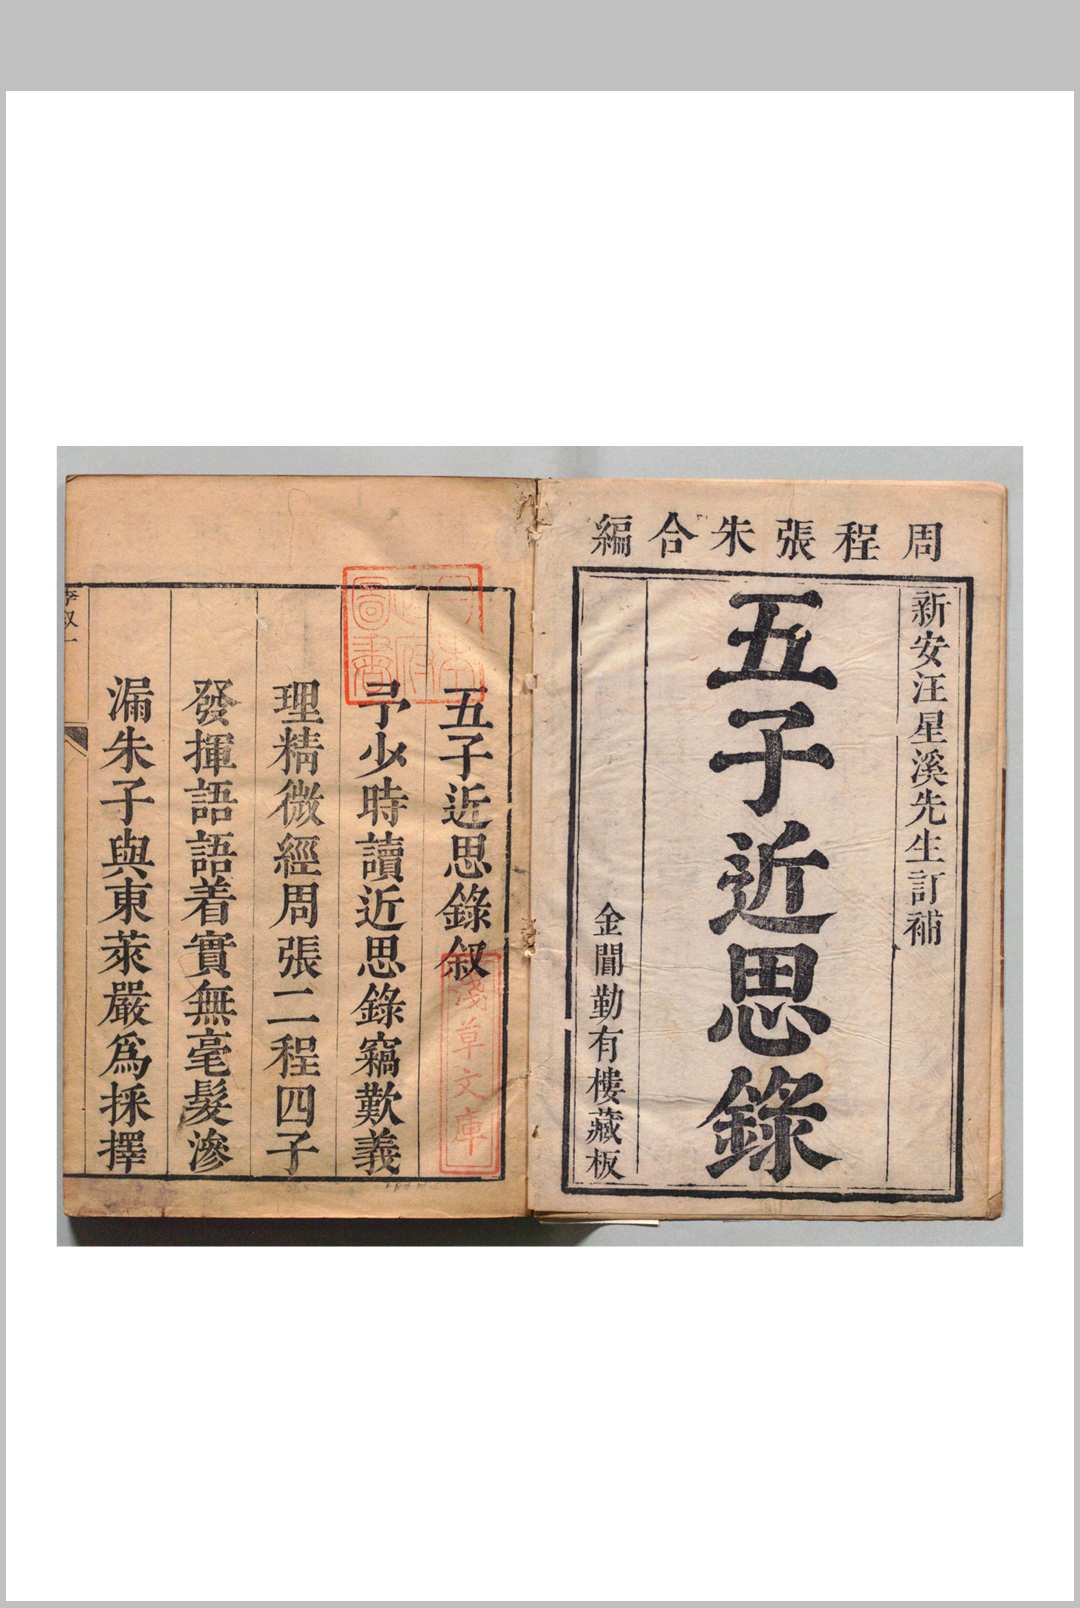 周程張朱合編
新安汪星溪先生訂補
五子近思錄
金閶勤有樓藏板
五子近思錄叙
予少時讀近思錄竊歎義
理精微經周張二程四子
發揮語語着實無毫髮滲
漏朱子與東萊嚴爲採擇
圖書
淺草文庫